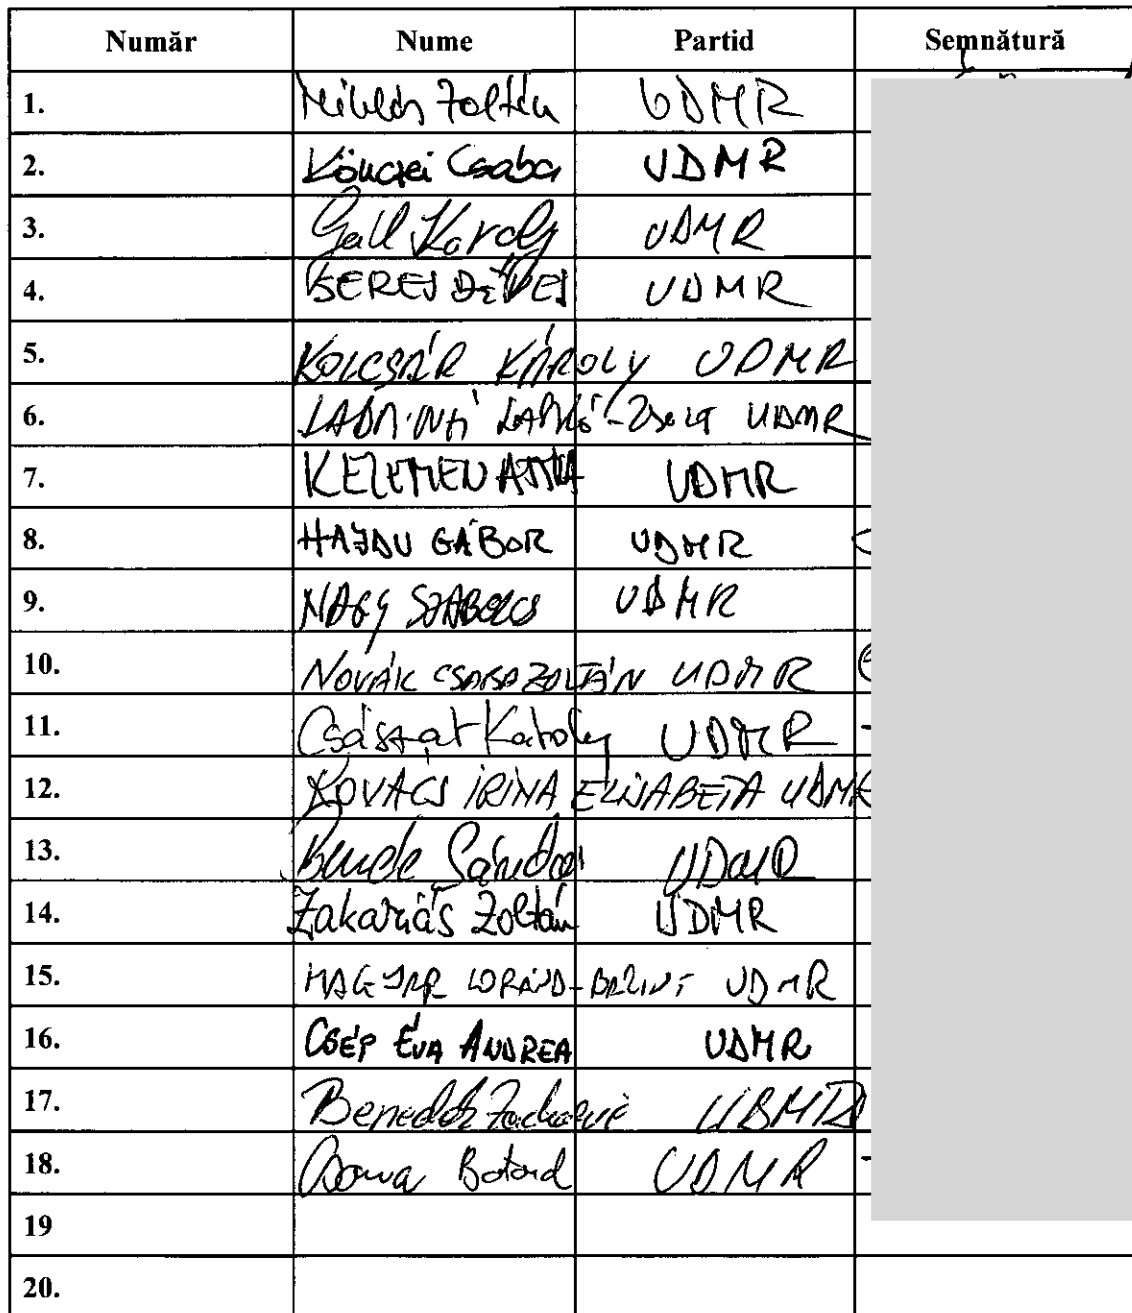 Număr Nume Partid Semnătură
1. Miklós Zoltán UDMR
2. Könczei Csaba UDMR
3. Gál Károly UDMR
4. BERES DÉNES UDMR
5. KOLCSÁR KÁROLY UDMR
6. LÁSZLÓ-Zsolt UDMR
7. KELEMEN ATTILA UDMR
8. HAJDU GÁBOR UDMR
9. NAGY SZABOLCS UDMR
10. NOVÁK CSABA ZOLTÁN UDMR
11. Császár Károly UDMR
12. KOVÁCS IRINA ELISABETA UDMR
13. Bende Sándor UDMR
14. Zakariás Zoltán UDMR
15. MAGYAR LORÁND-BÁLINT UDMR
16. CSÉP ÉVA ANDREA UDMR
17. Benedek Zacharie UDMR
18. Csoma Botond UDMR
19
20.